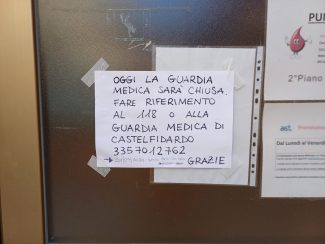 OGGI LA GUARDIA
MEDICA SARÀ CHIUSA.
FARE RIFERIMENTO
AL 118 O ALLA
GUARDIA MEDICA DI
CASTELFIDARDO
3357012762
GRAZIE
PU
2° Piano
ast
Dal Lunedì al Venerdì